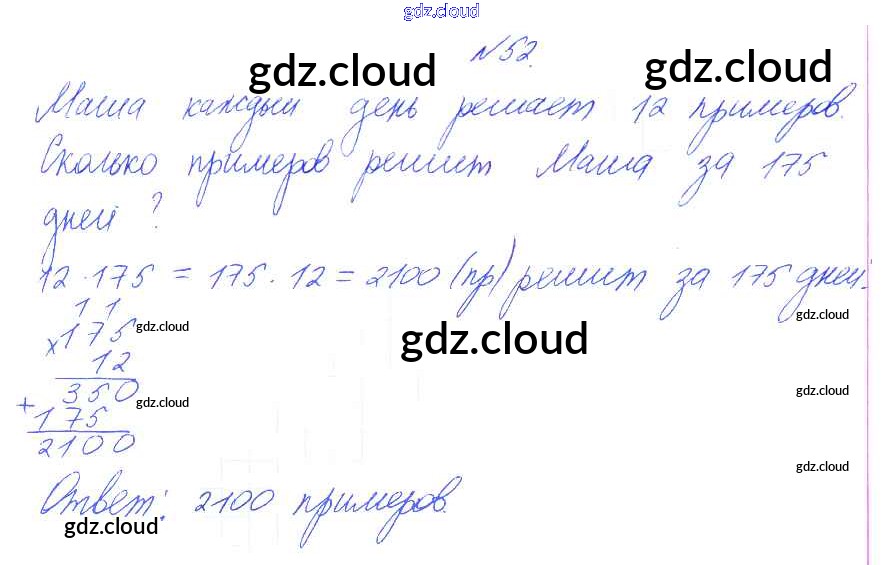 gdz.cloud
№52.
gdz.cloud gdz.cloud
Маша каждый день решает 12 примеров.
Сколько примеров решит Маша за 175
дней ?
12 · 175 = 175 · 12 = 2100 (пр) решит за 175 дней.
1 1
×175 gdz.cloud gdz.cloud gdz.cloud
12
350
+ gdz.cloud gdz.cloud
175
2100
gdz.cloud
Ответ: 2100 примеров.
gdz.cloud